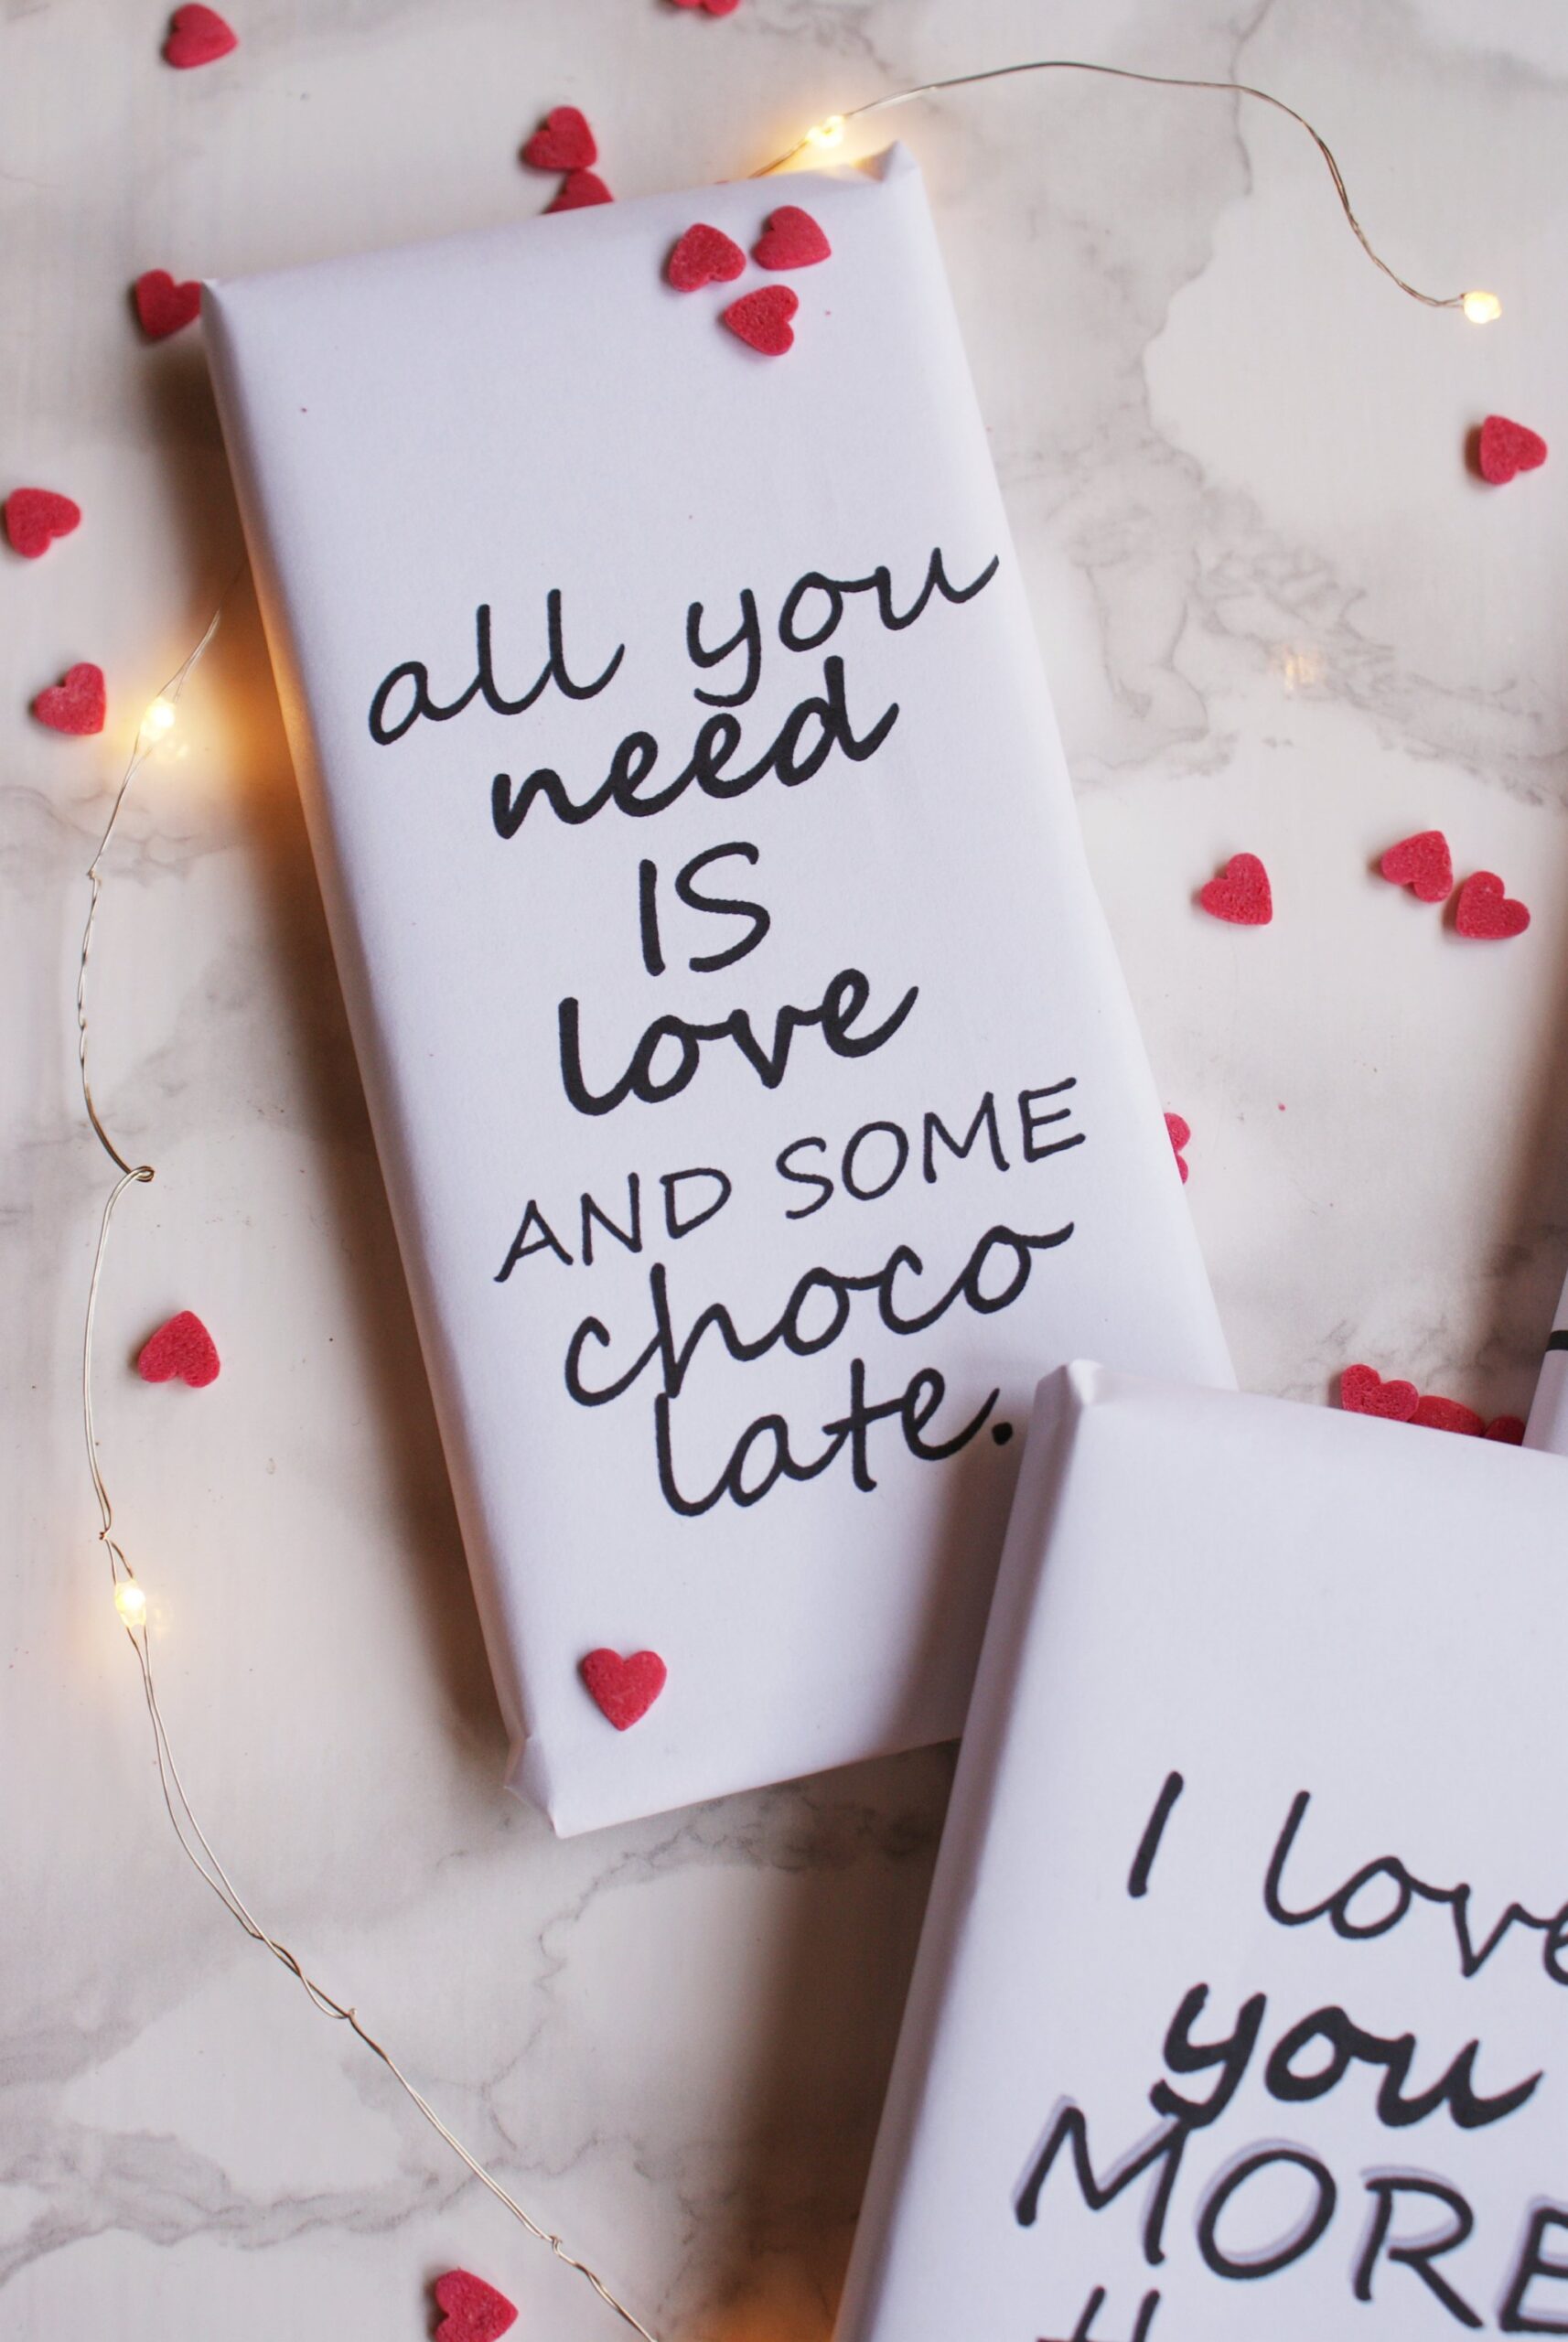 all you
need
IS
love
AND SOME
choco
late.
I love
you
MORE